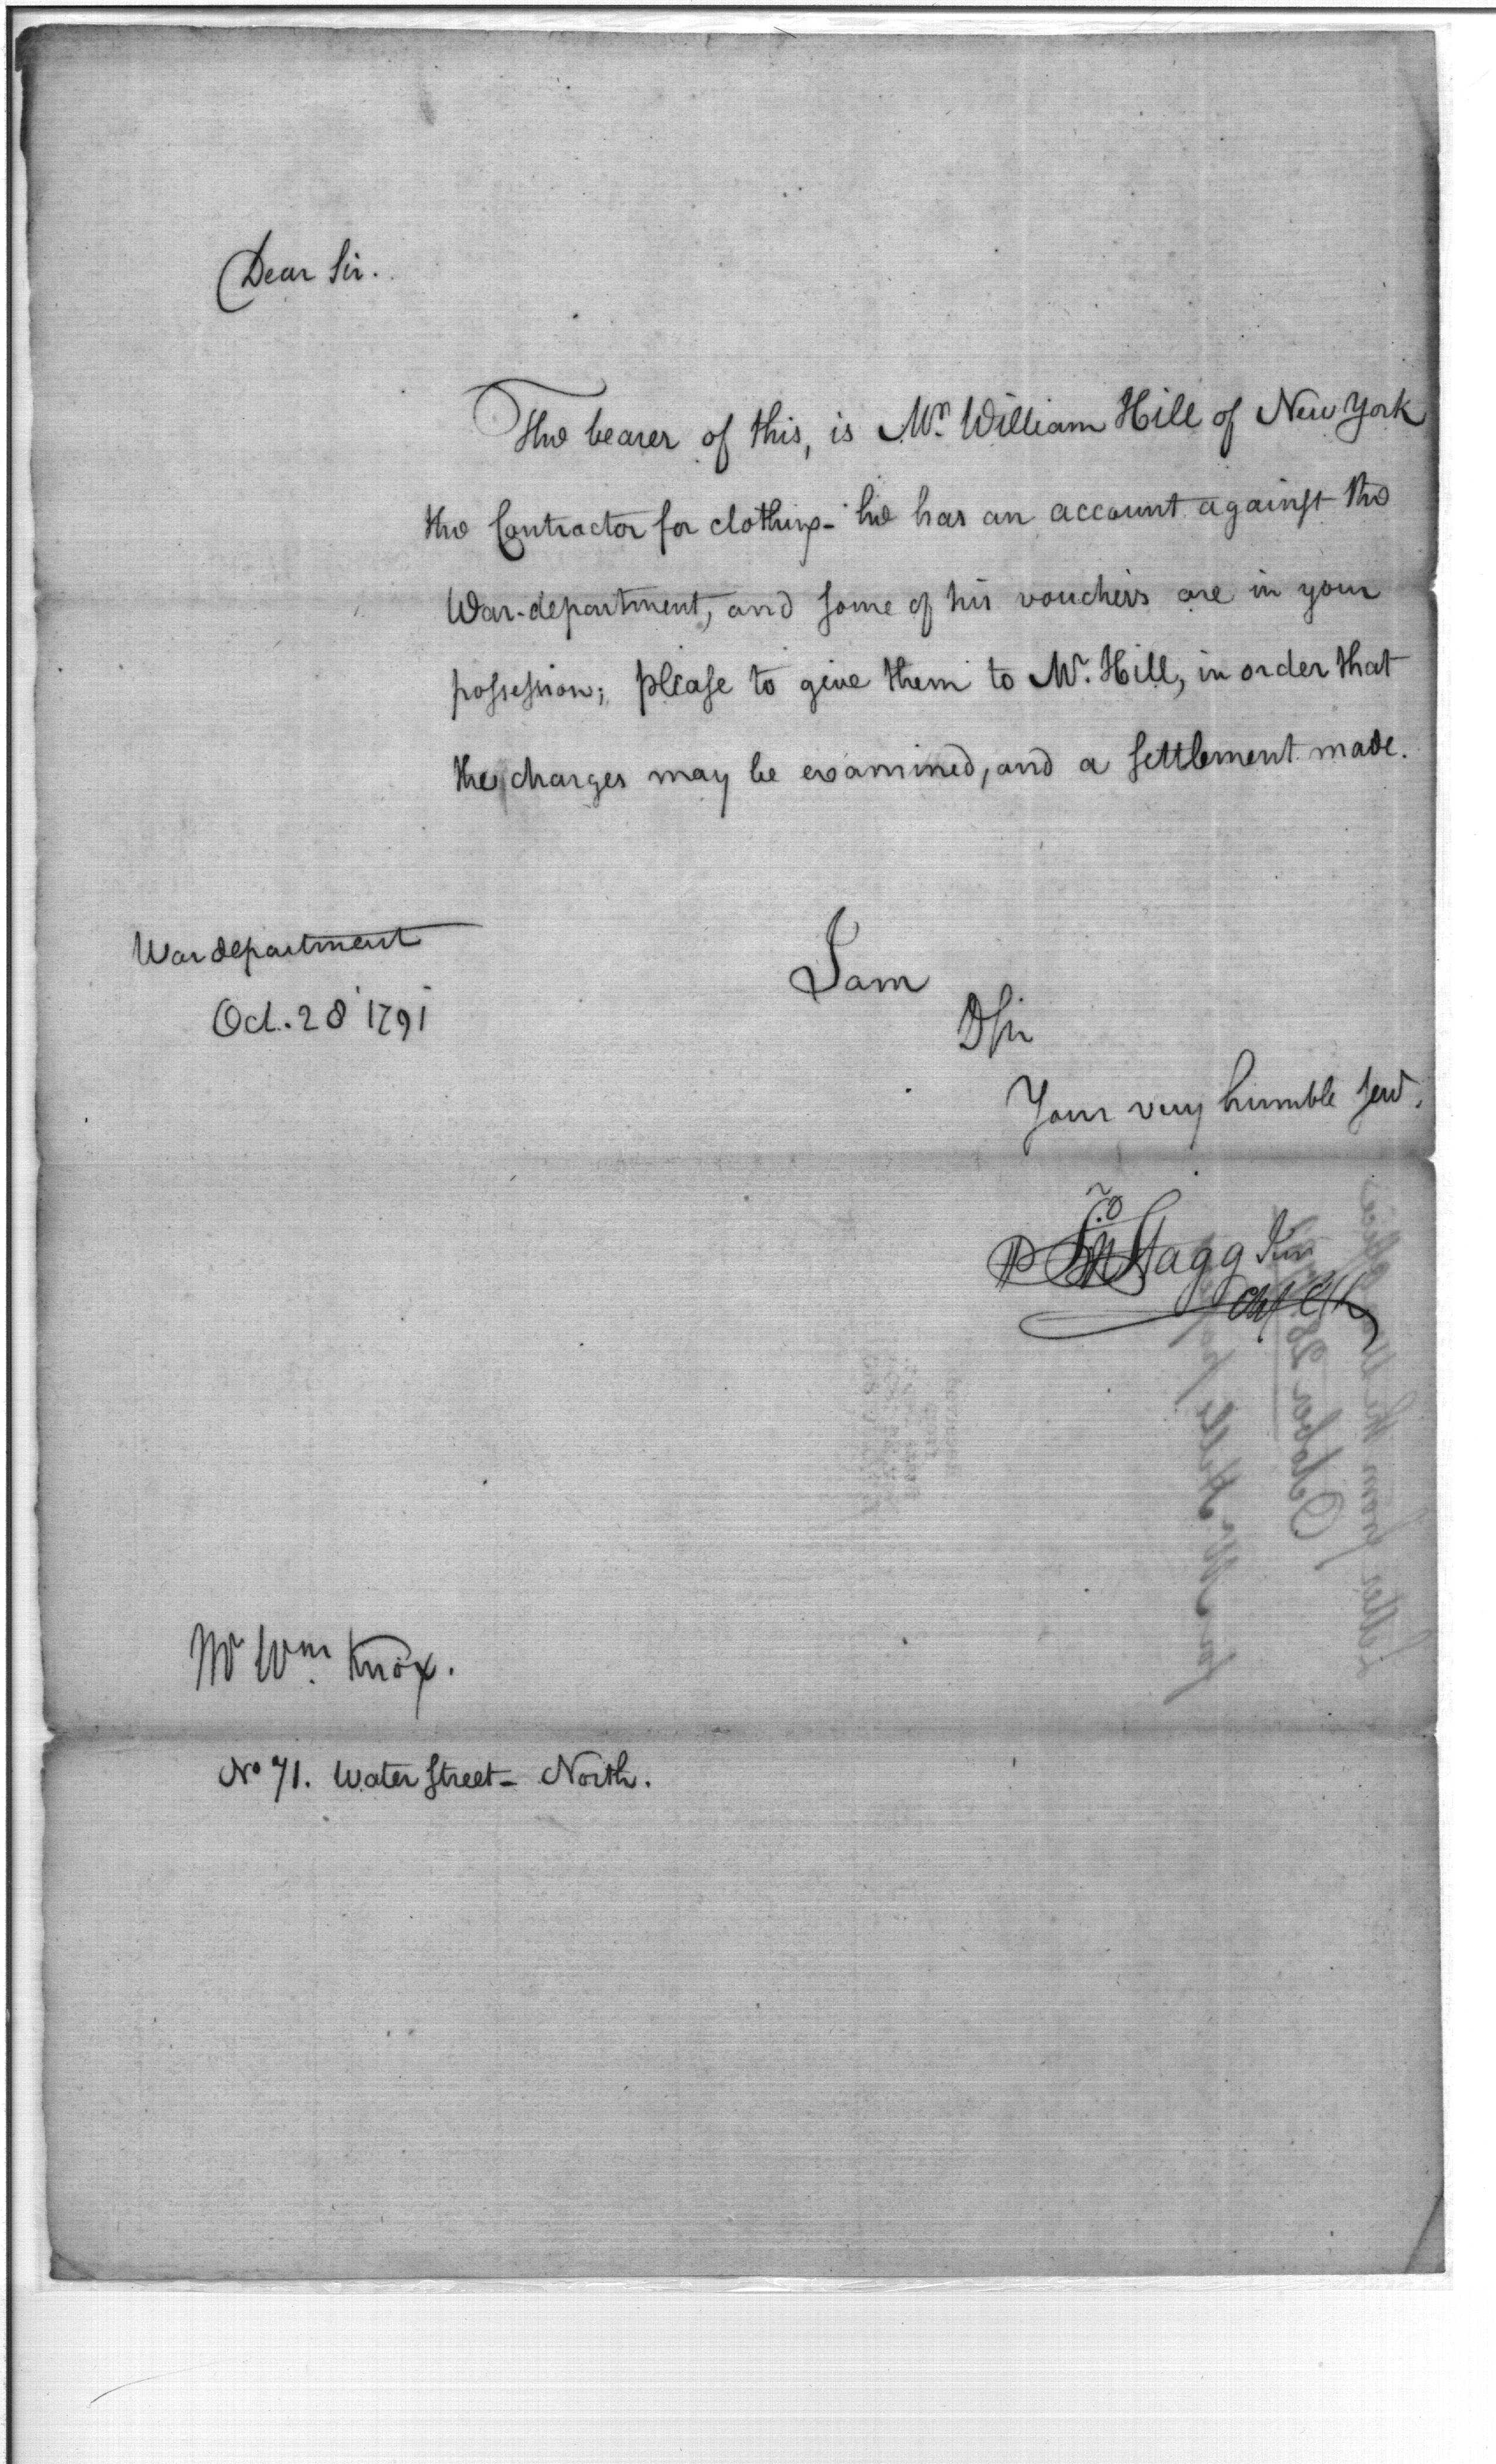 Dear Sir.
The bearer of this, is Mr. William Hill of New York
the Contractor for clothing - he has an account against the
War-department, and some of his vouchers are in your
possession; please to give them to Mr. Hill, in order that
the charges may be examined, and a settlement made.
War department
Oct. 28 1791
I am
D Sir
Your very humble Serv.
Jno Stagg Jun
Chf Clk
Mr Wm Knox.
No 71. Water Street - North.
Letter from the War Office
October 28
for Mr Hill's